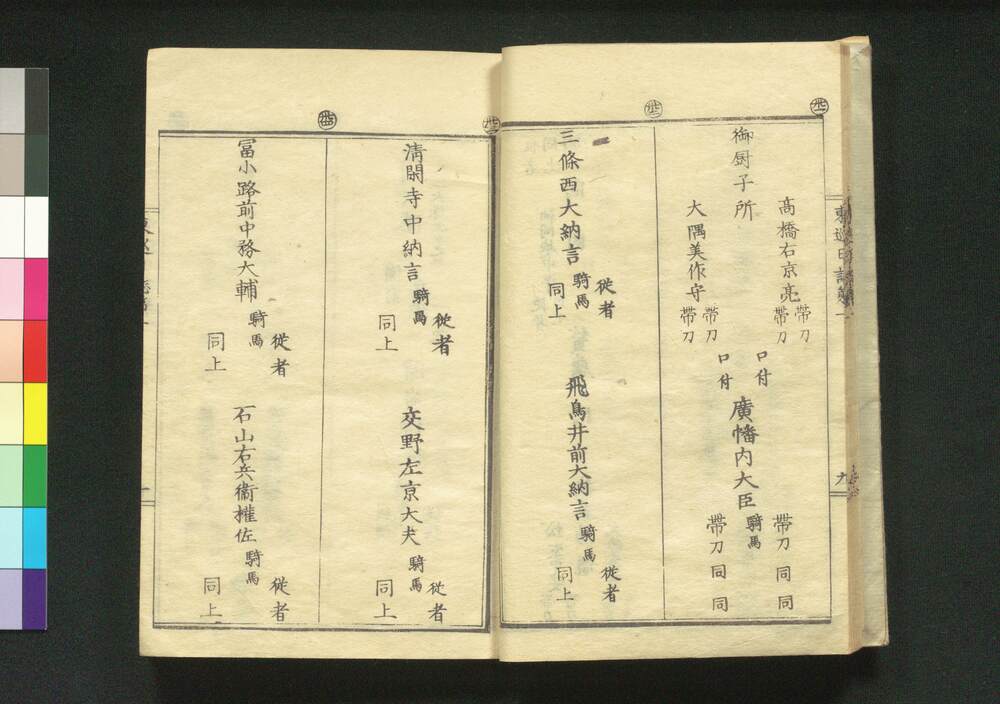 御厨子所
高橋右京亮
帶刀
帶刀
大隅美作守
帶刀
帶刀
口付
口付
廣幡内大臣
騎馬
帶刀同同
帶刀同同
三條西大納言
騎馬
從者
同上
飛鳥井前大納言
騎馬
從者
同上
清閑寺中納言
騎馬
從者
同上
交野左京大夫
騎馬
從者
同上
冨小路前中務大輔
騎馬
從者
同上
石山右兵衞權佐
騎馬
從者
同上